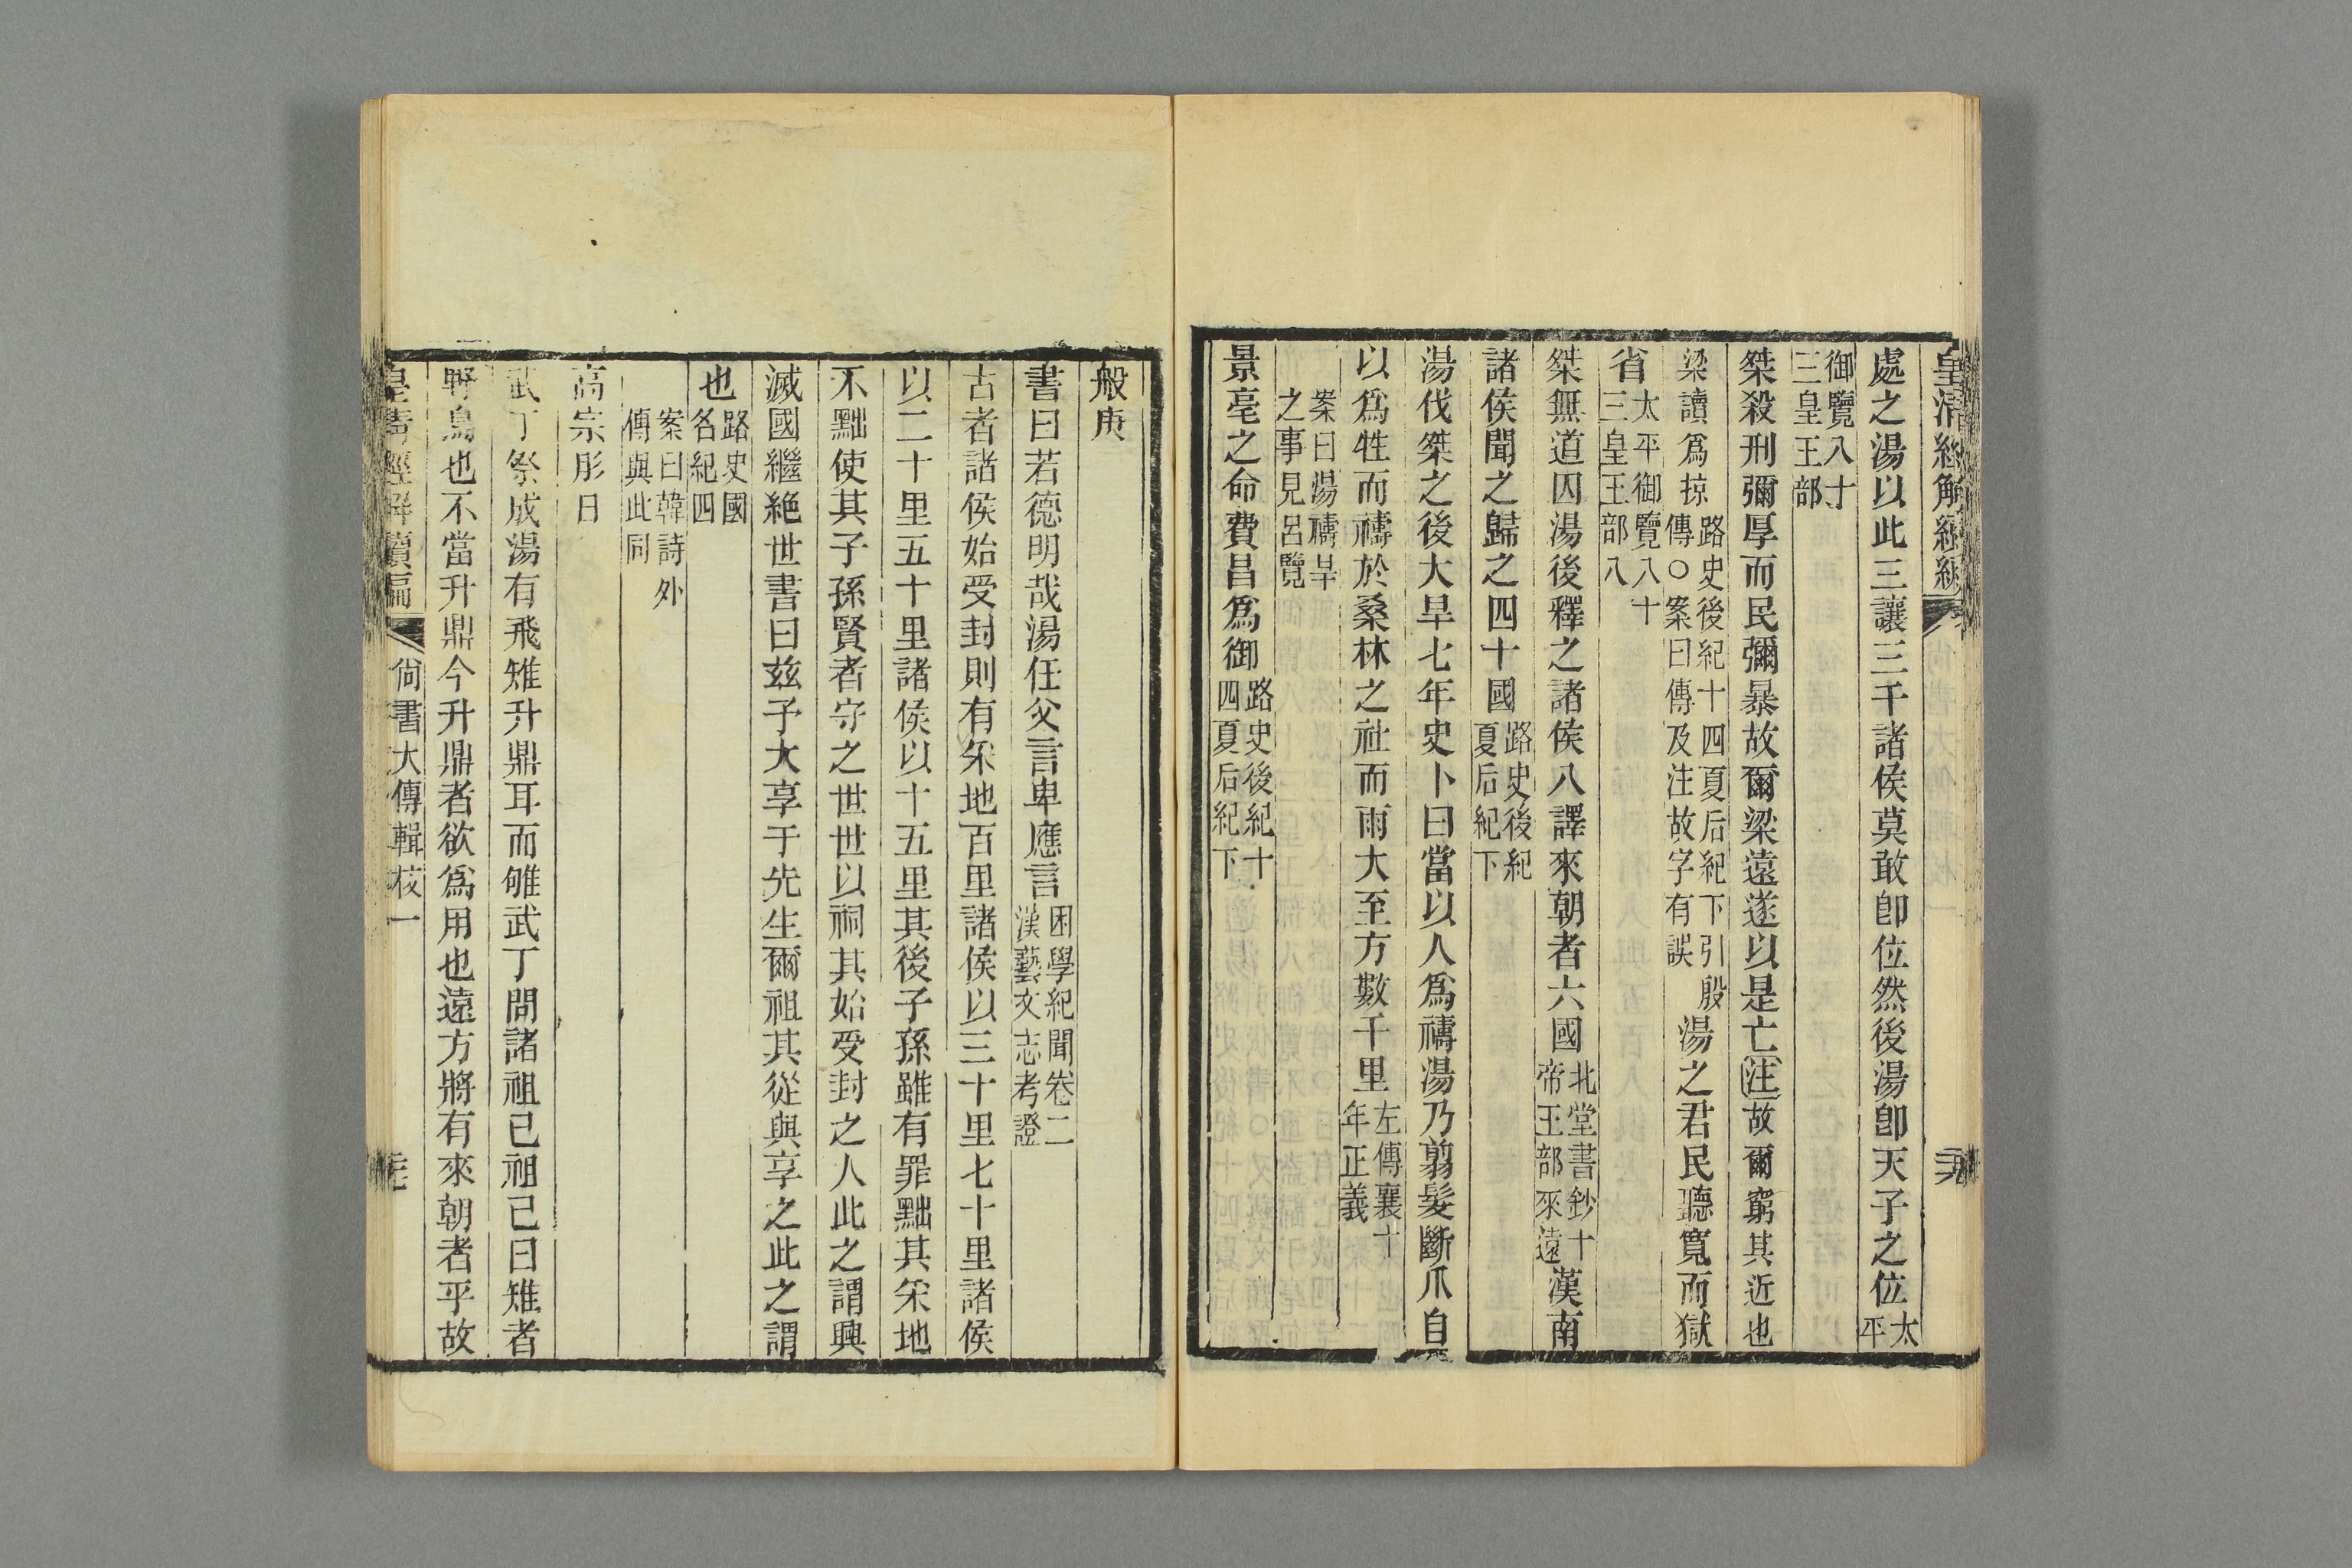 處之湯以此三讓三千諸侯莫敢卽位然後湯卽天子之位太平
御覽八十三皇王部
桀殺刑彌厚而民彌暴故爾梁遠遂以是亡注故爾窮其近也
梁讀爲掠路史後紀十四夏后紀下引殷傳○案曰傳及注故字有誤湯之君民聽寬而獄
省太平御覽八十三皇王部八
桀無道囚湯後釋之諸侯八譯來朝者六國北堂書鈔十帝王部來遠漢南
諸侯聞之歸之四十國路史後紀夏后紀下
湯伐桀之後大旱七年史卜曰當以人爲禱湯乃翦髮斷爪自
以爲牲而禱於桑林之社而雨大至方數千里左傳襄十年正義
案曰湯禱旱之事見呂覽
景亳之命費昌爲御路史後紀十四夏后紀下
般庚
書曰若德明哉湯任父言卑應言困學紀聞卷二漢藝文志考證
古者諸侯始受封則有采地百里諸侯以三十里七十里諸侯
以二十里五十里諸侯以十五里其後子孫雖有罪黜其采地
不黜使其子孫賢者守之世世以祠其始受封之人此之謂興
滅國繼絕世書曰兹予大享于先生爾祖其從與享之此之謂
也路史國名紀四
案曰韓詩外傳與此同
高宗肜日
武丁祭成湯有飛雉升鼎耳而雊武丁問諸祖己祖己曰雉者
野鳥也不當升鼎今升鼎者欲爲用也遠方將有來朝者乎故
尙書大傳輯校一